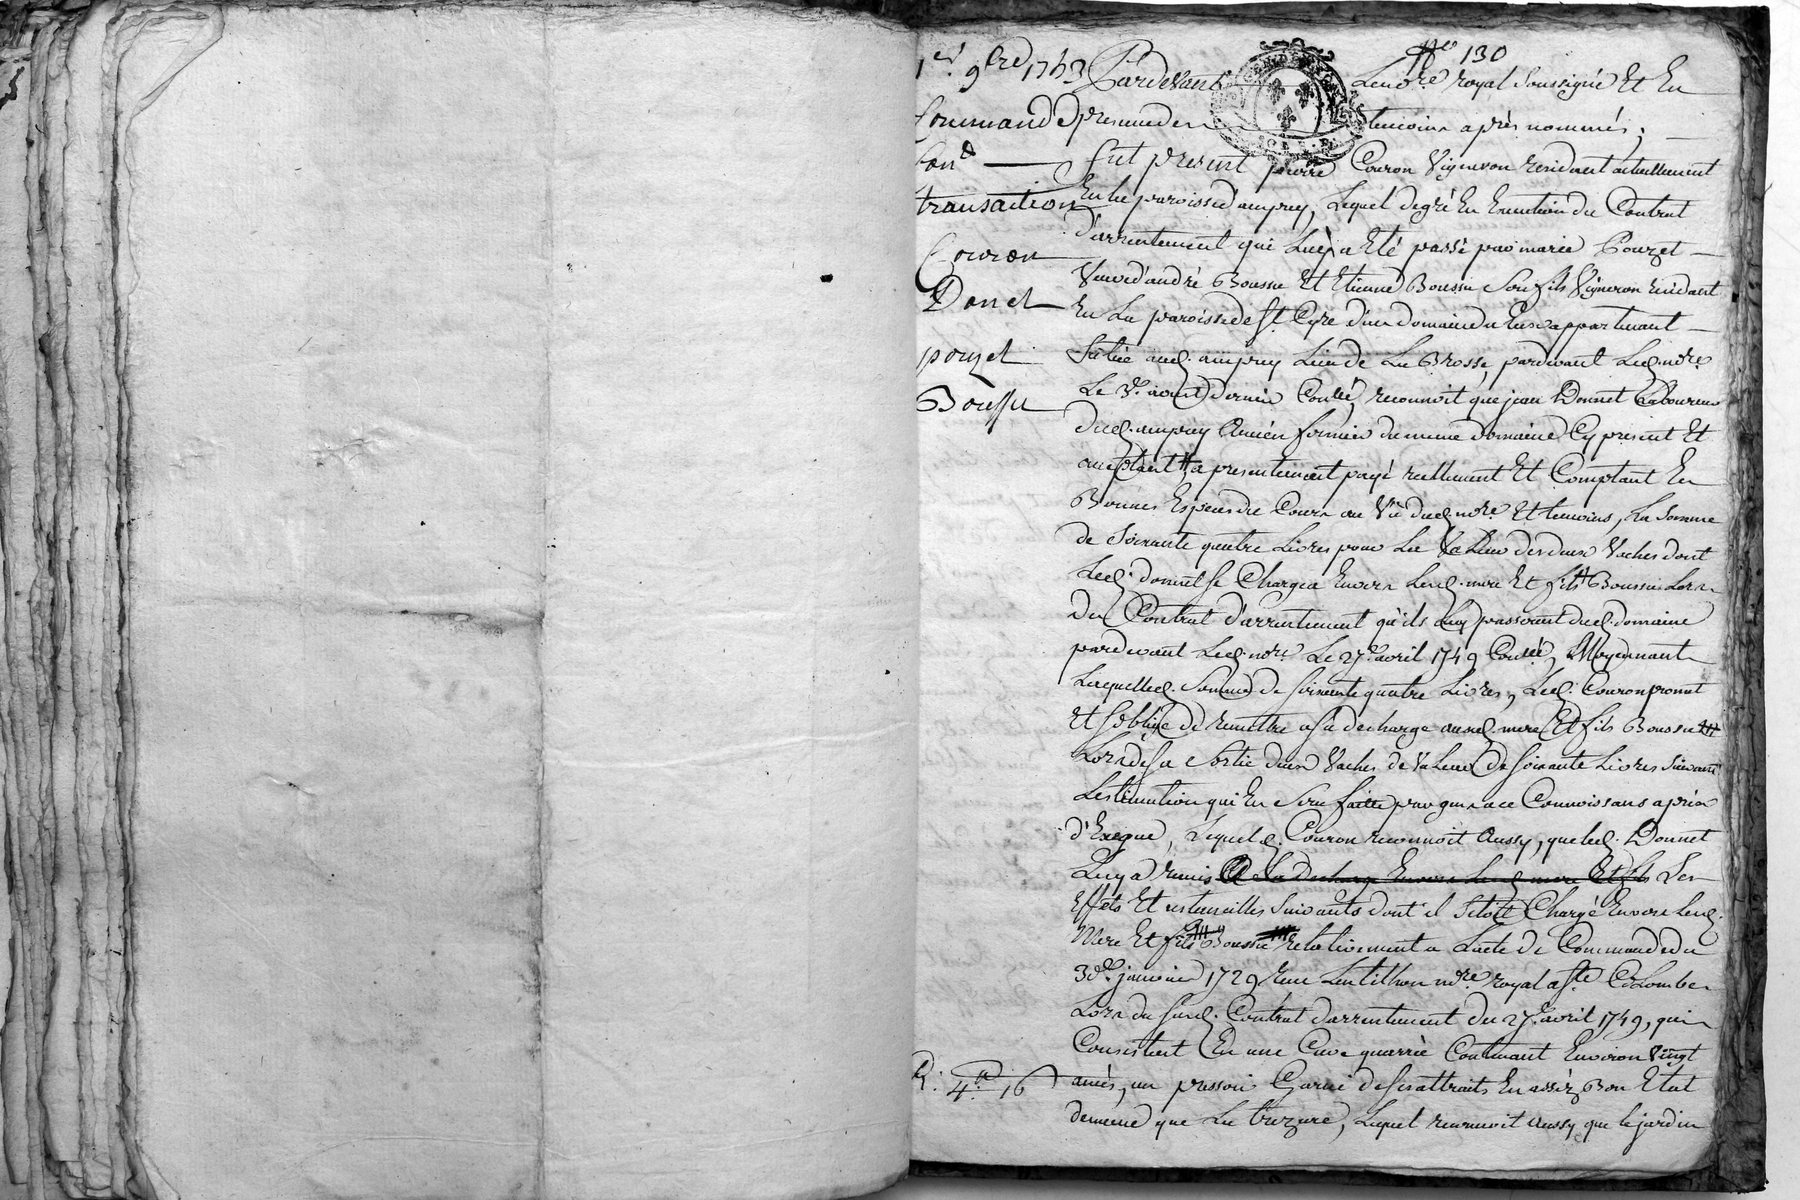 130
1er 9bre 1763
Commande
Cond
transaction
Couron
Donet
pouzet
Boussu
Pardevant Le nore royal Soussigné Et En
presence des temoins après nommés;
fut present pierre Couron Vigneron residant actuellement
En la paroisse d'ampuy, Lequel de gré En Execution du Contrat
d'arrentement qui Luy a Eté passé par marie Pouzet
Veuve d'andré Boussu Et Etienne Boussu Son fils Vigneron residant
En La paroisse de St Cyre d'un domaine a Eux appartenant
Situé aud. ampuy Lieu de La Brosse, pardevant Led. nore
Le 3e aout dernier Conllé, reconnoit que jean Donnet Laboureur
dud. ampuy Ancien fermier du meme domaine Cy present Et
acceptant, a presentement payé reellement Et Comptant En
Bonnes Especes du Cours au Vu dud. nore Et temoins, La Somme
de Soixante quatre Livres pour La Valeur des deux Vaches dont
Led. donnet Se Chargea Envers Lesd. mere Et fils Boussu Lors
du Contrat d'arrentement qu'ils Luy passerent dud. domaine
pardevant Led. nore Le 27e avril 1749 Conllé, Moyennant
Laquelle d. Somme de Soixante quatre Livres, Led. Couron promet
Et S'oblige de remettre a Sa decharge auxd. mere Et fils Boussu
Lors de Sa Sortie deux Vaches de Valeur de Soixante Livres Suivant
L'estimation qui En Sera faitte par gens a ce Connoissans après
d'Exegue, Lequel d. Couron reconnoit Aussy, que Led. Donnet
Luy a remis a Sa decharge Envers Lesd. mere Et fils Les
Effets Et ustancilles Suivants dont il S'etoit Chargé Envers Lesd.
Mere Et fils Boussu relativement a L'acte de Commande du
3de janvier 1729 recu Lentilhon nore royal a Ste Colombe
Lors du Susd. Contrat d'arrentement du 27e avril 1749, qui
Consistent En une Cuve quarrée Contenant Environ Vingt
R: 4tt 16
anées, un pressoir Garni de Ses attraits En assez Bon Etat
de meme que La , Lequel reconnoit aussy que le jardin